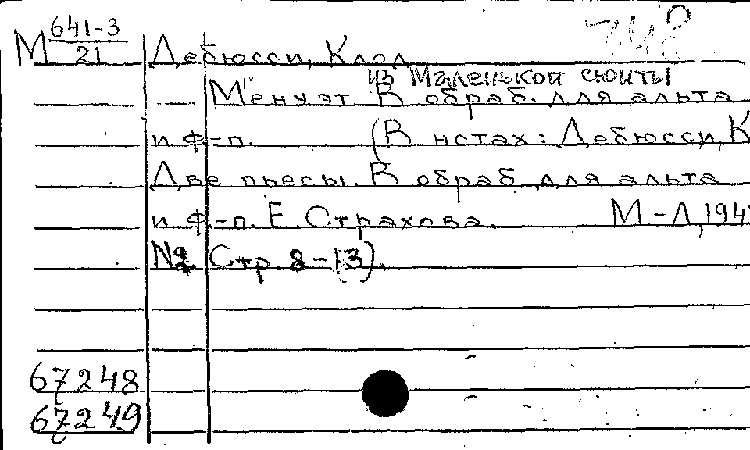 М 641-3/21
748
Дебюсси, Клод
из Маленькой сюиты
Менуэт В обраб. для альта
и ф-п. (В нотах: Дебюсси, К
Две пьесы. В обраб. для альта
и ф-п. Е. Страхова. М-Л, 194
№2 Стр. 8-13).
67248
67249